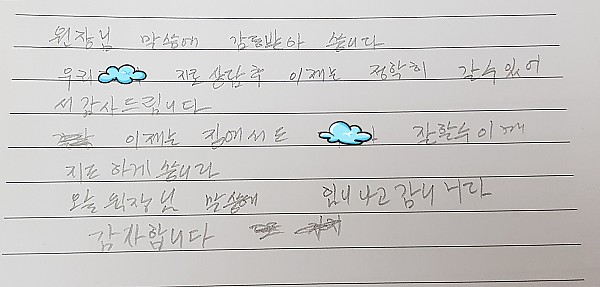 원장님 막씀에 감동받아 씁니다
우리 지도 상담후 이제는 정학히 갈수있어
서 감사드림니다
이제는 집에서도 잘할수이께
지도 하게 씁니다
오늘 원장님 말씀에 입니나고 감니니다
감사합니다